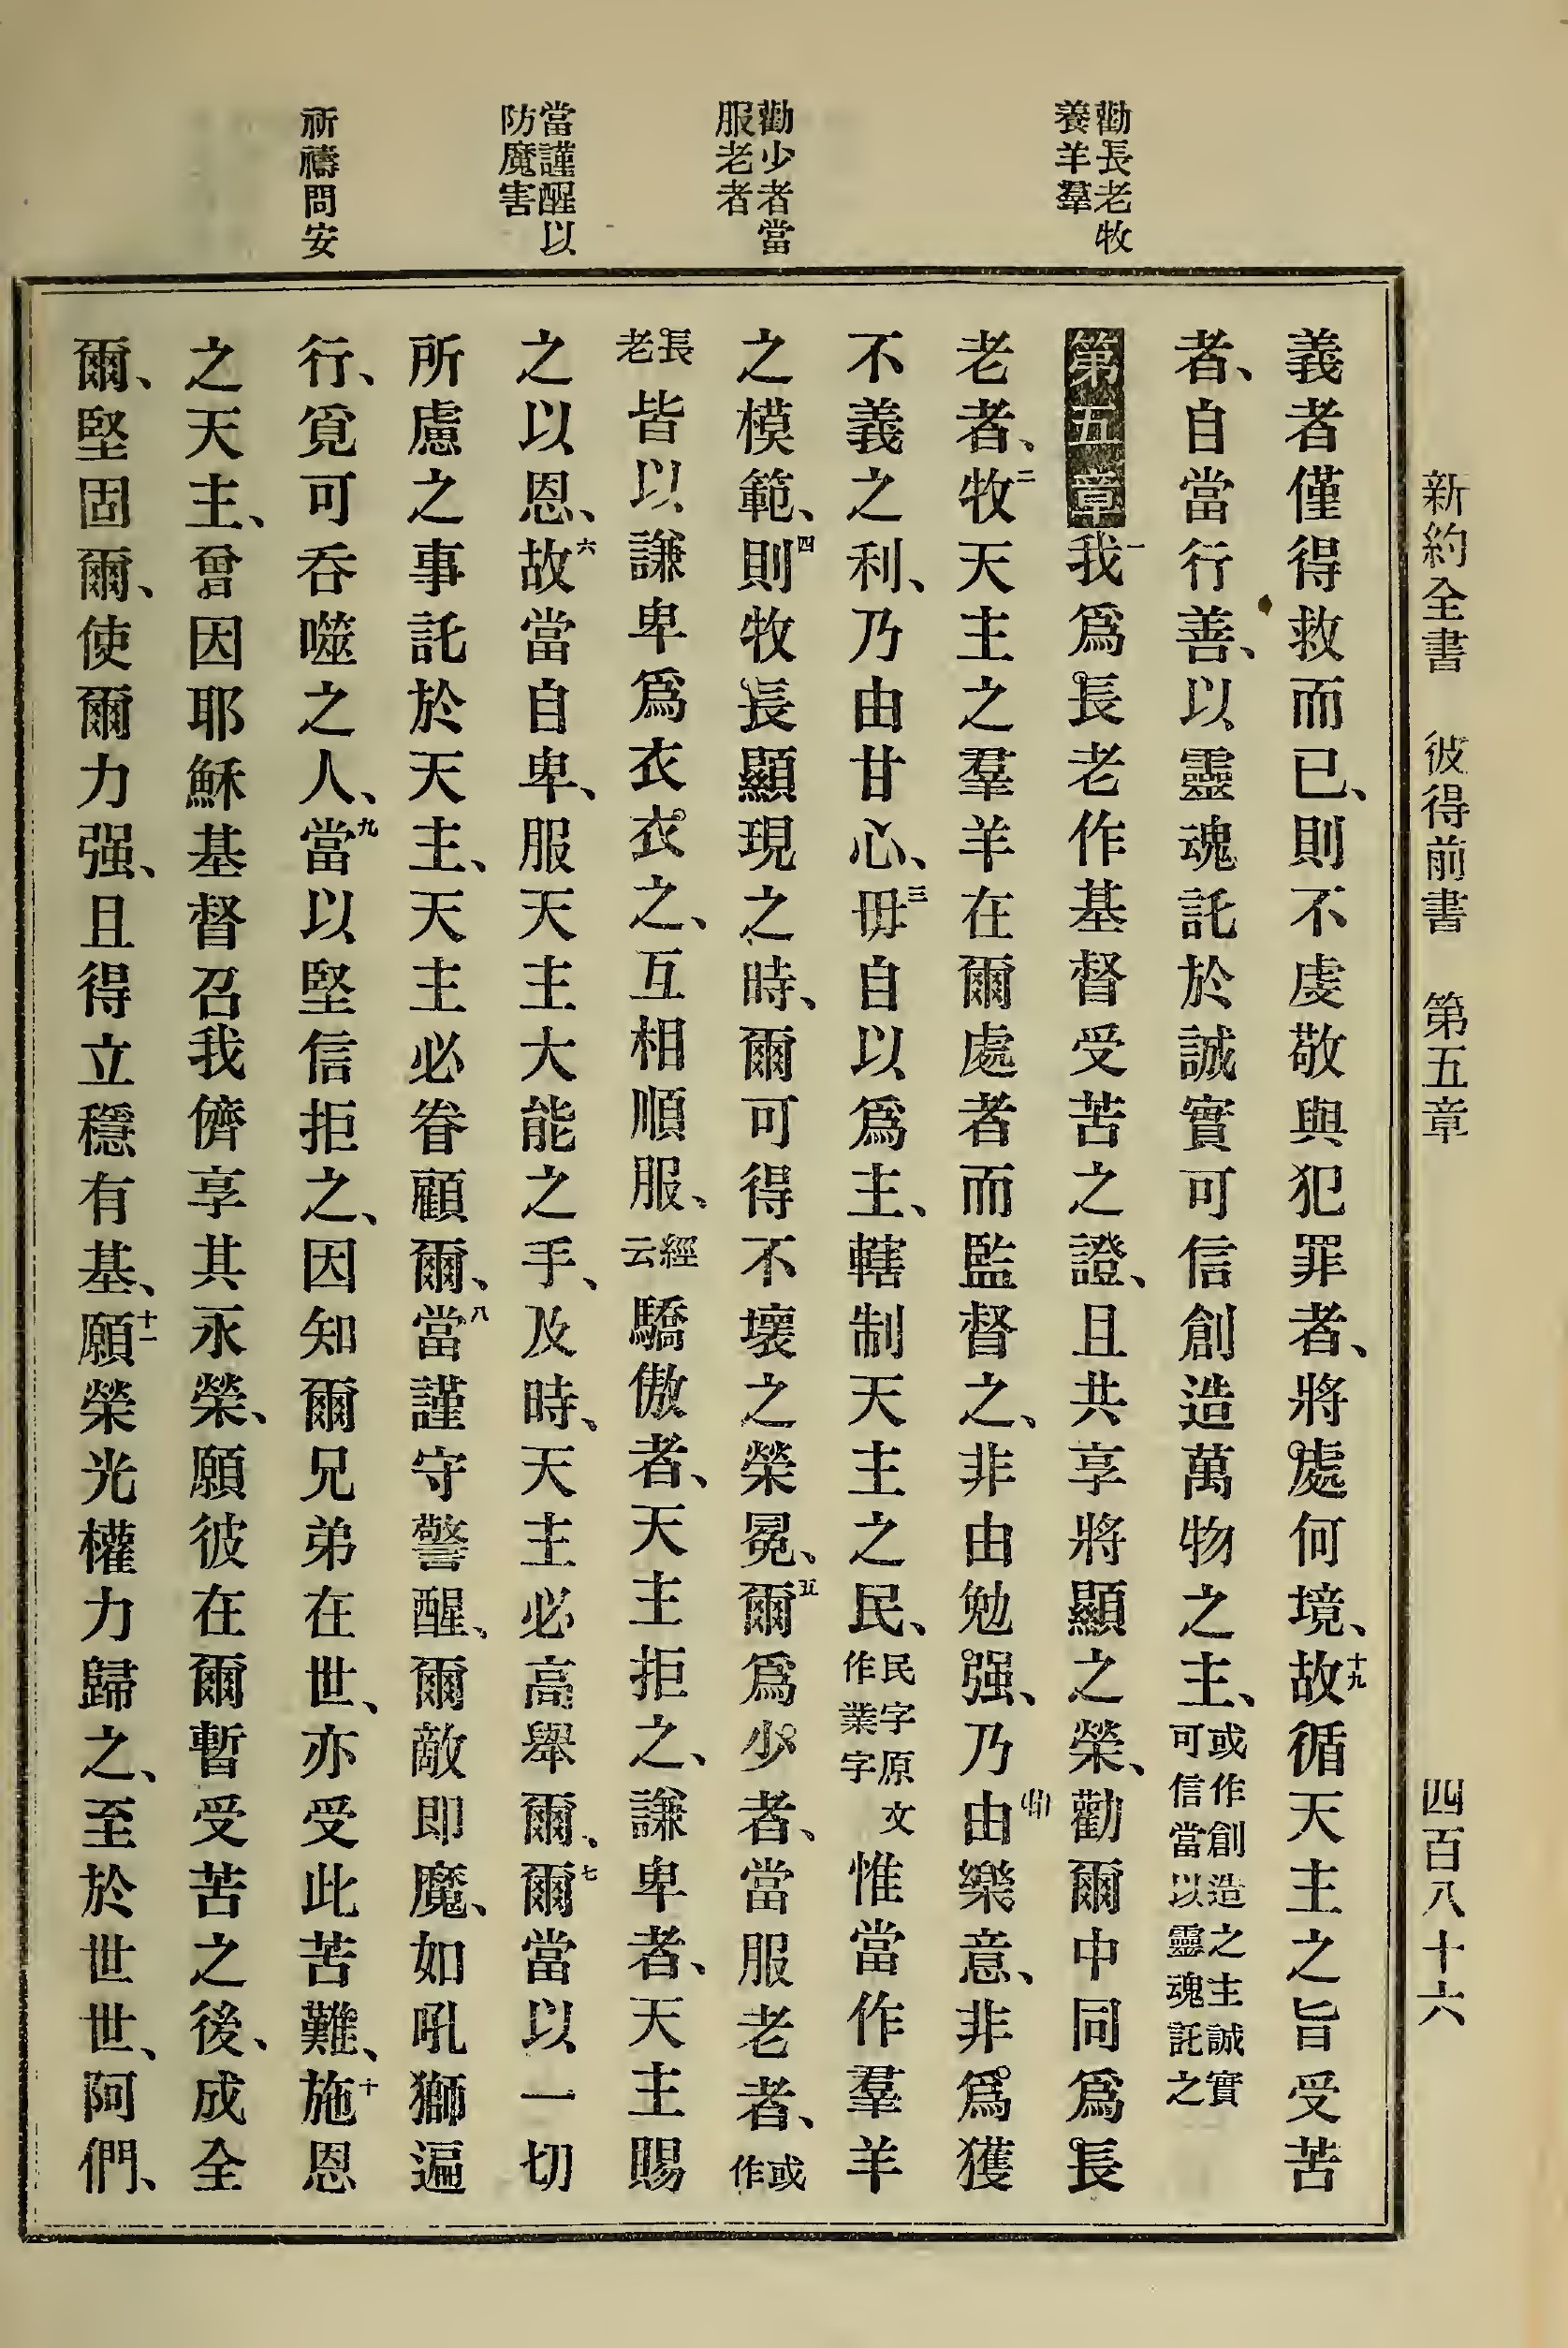 新約全書 彼得前書 第五章 四百八十六
勸長老牧
養羊羣
勸少者當
服老者
當謹醒以
防魔害
祈禱問安
義者僅得救而已、則不虔敬與犯罪者、將處何境、十九故循天主之旨受苦
者、自當行善、以靈魂託於誠實可信創造萬物之主、或作創造之主誠實可信當以靈魂託之
第五章一我爲長老作基督受苦之證、且共享將顯之榮、勸爾中同爲長
老者、二牧天主之羣羊在爾處者而監督之、非由勉强、乃由樂意、非爲獲
不義之利、乃由甘心、三毋自以爲主、轄制天主之民、民字原文作業字惟當作羣羊
之模範、四則牧長顯現之時、爾可得不壞之榮冕、五爾爲少者、當服老者、或作
長老皆以謙卑爲衣衣之、互相順服、經云驕傲者、天主拒之、謙卑者、天主賜
之以恩、六故當自卑、服天主大能之手、及時、天主必高舉爾、七爾當以一切
所慮之事託於天主、天主必眷顧爾、八當謹守警醒、爾敵即魔、如吼獅遍
行、覓可吞噬之人、九當以堅信拒之、因知爾兄弟在世、亦受此苦難、十施恩
之天主、曾因耶穌基督召我儕享其永榮、願彼在爾暫受苦之後、成全
爾、堅固爾、使爾力强、且得立穩有基、十一願榮光權力歸之、至於世世、阿們、